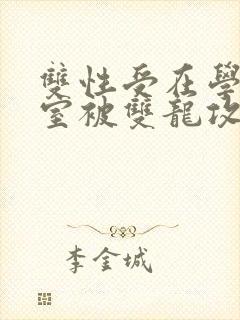 雙性受在學
室被雙龍攻
李金城